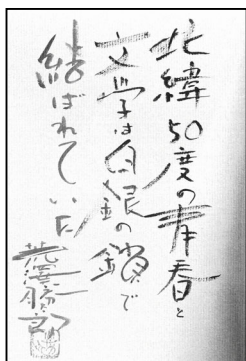 北緯50度の青春と
文学は白銀の鎖で
結ばれていた
荒澤勝太郎